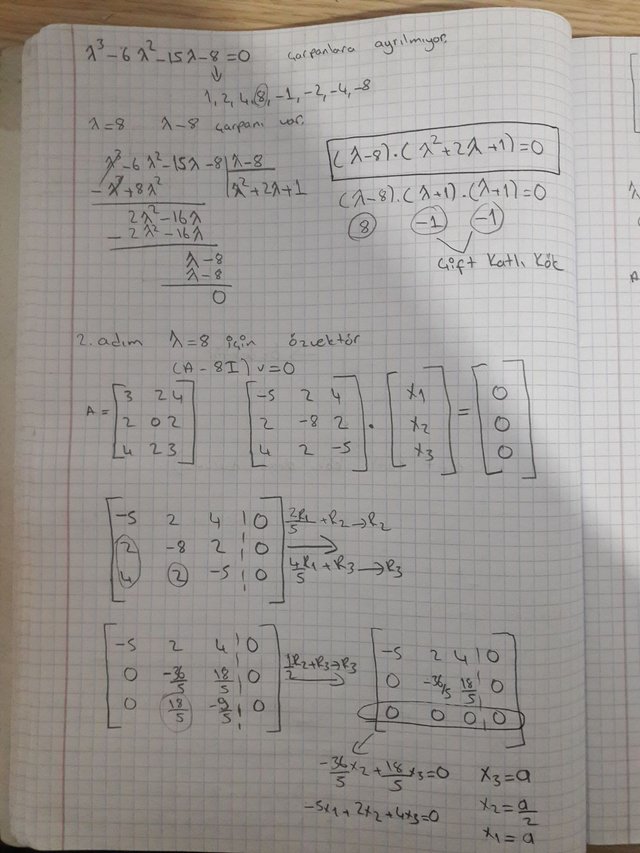 λ³-6λ²-15λ-8=0 çarpanlara ayrılmıyor.
↓
1, 2, 4, 8, -1, -2, -4, -8
λ=8 λ-8 çarpanı var.
λ³-6λ²-15λ-8 | λ-8
-λ³+8λ² | λ²+2λ+1
2λ²-16λ
-2λ²-16λ
λ-8
λ-8
0
(λ-8).(λ²+2λ+1)=0
(λ-8).(λ+1).(λ+1)=0
8 -1 -1
Çift Katlı Kök
2. adım λ=8 için özvektör
(A-8I)v=0
A= [3 2 4] [-5 2 4] . [x1] = [0]
[2 0 2] [2 -8 2] [x2] [0]
[4 2 3] [4 2 -5] [x3] [0]
[-5 2 4 | 0] 2R1/5 +R2→R2
[2 -8 2 | 0]
[4 2 -5 | 0] 4R1/5 +R3→R3
[-5 2 4 | 0] 1/2 R2+R3→R3 [-5 2 4 | 0]
[0 -36/5 18/5 | 0] [0 -36/5 18/5 | 0]
[0 18/5 -9/5 | 0] [0 0 0 | 0]
-36/5 x2 + 18/5 x3=0 x3=a
-5x1+2x2+4x3=0 x2=a/2
x1=a